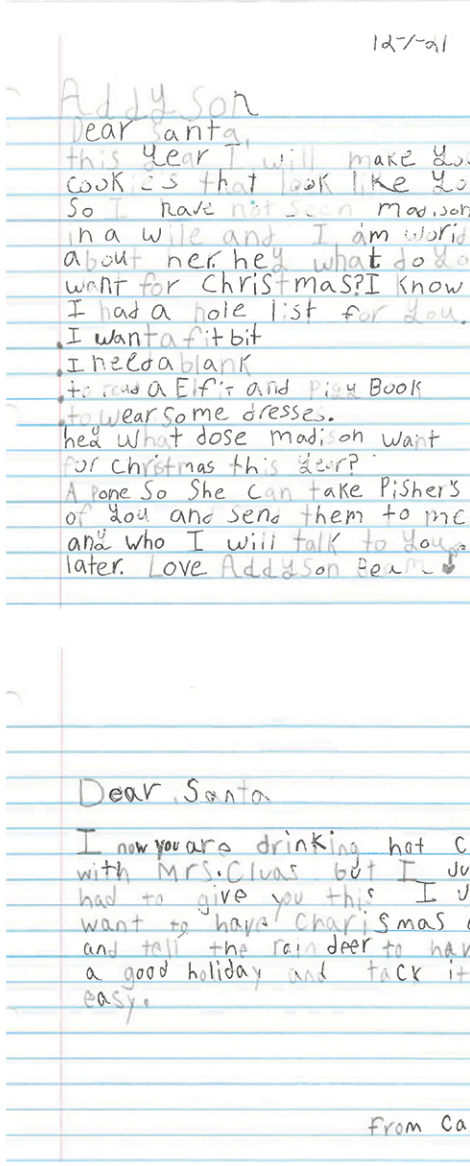 12-1-21
Addyson
Dear Santa,
this year I will make you
cookies that look like yo
So I have not seen madison
in a wile and I am worid
about her. hey what do yo
want for Christmas? I know
I had a hole list for you.
I want a fit bit
I need a blank
to read a Elf it and Pigy Book
to wear some dresses.
hey what dose madison want
for christmas this year?
A pone So She can take Pisher's
of you and send them to me
and who I will talk to you
later. Love Addyson Beam
Dear Santa
I now you are drinking hot c
with Mrs. Cluas but I ju
had to give you this I j
want to have Charismas
and tell the rain deer to hav
a good holiday and tack it
easy.
from Ca